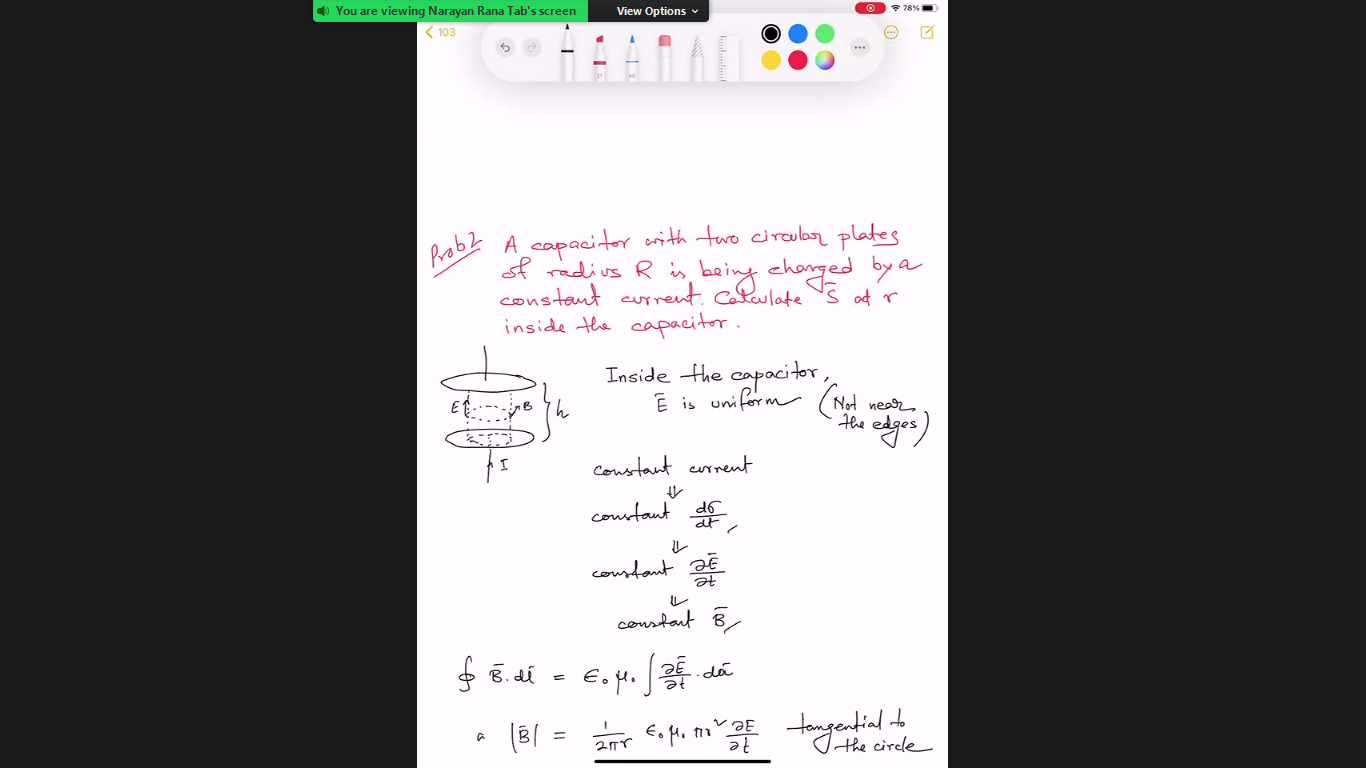 You are viewing Narayan Rana Tab's screen
View Options
78%
103
21
Prob 2
A capacitor with two circular plates
of radius R is being charged by a
constant current. Calculate S̄ at r
inside the capacitor.
Inside the capacitor,
Ē is uniform (Not near the edges)
E B h
I
constant current
⇓
constant dσ/dt
⇓
constant ∂Ē/∂t
⇓
constant B̄
∮ B̄.dl̄ = ϵ₀ μ₀ ∫ ∂Ē/∂t . dā
|B̄| = 1/2πr ϵ₀ μ₀ πr² ∂E/∂t tangential to the circle